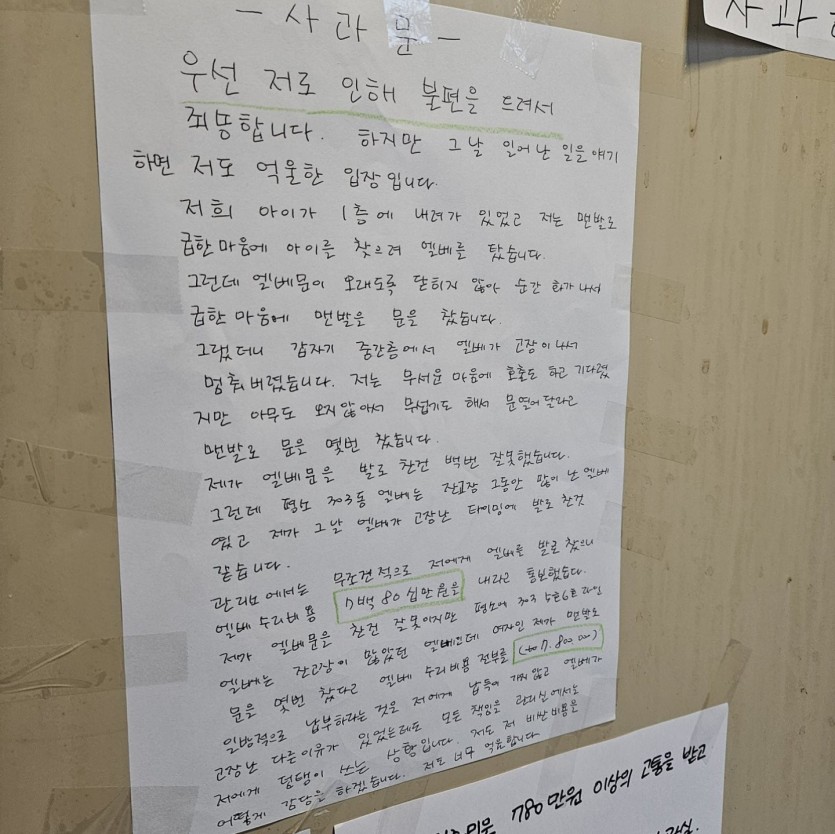 - 사과문 -
우선 저로 인해 불편을 드려서
죄송합니다. 하지만 그날 일어난 일을 얘기
하면 저도 억울한 입장입니다.
저희 아이가 1층에 내려가 있었고 저는 맨발로
급한마음에 아이를 찾으려 엘베를 탔습니다.
그런데 엘베문이 오래도록 닫히지 않아 순간 화가나서
급한 마음에 맨발을 문을 찼습니다.
그랬더니 갑자기 중간층에서 엘베가 고장이나서
멈춰버렸습니다. 저는 무서운 마음에 호출도 하고 기다렸
지만 아무도 오지않아서 무섭기도 해서 문열어달라고
맨발로 문을 몇번 찼습니다.
제가 엘베문을 발로 찬건 백번 잘못했습니다.
그런데 평소 303동 엘베는 잔고장 그동안 많이 난 엘베
였고 제가 그날 엘베가 고장난 타이밍에 발로 찬것
같습니다.
관리소에서는 무조건적으로 저에게 엘베를 발로 찼으니
엘베 수리비용 7백 80십만원을 내라고 통보했습니다.
제가 엘베문을 찬건 잘못이지만 평소에 303 5호6호 라인
엘베는 잔고장이 많았던 엘베인데 여자인 제가 맨발로
문을 몇번 찼다고 엘베 수리비용 전부를
일방적으로 납부하라는 것은 저에게 납득이 가지 않고 엘베가
고장난 다른이유가 있었는데도 모든 책임을 관리실에서는
저에게 덤탱이 쓰는 상황입니다. 저도 저 비싼비용을
어떻게 감당을 하겠습니다. 저도 너무 억울합니다
사과
780만원 이상의 고통을 받고